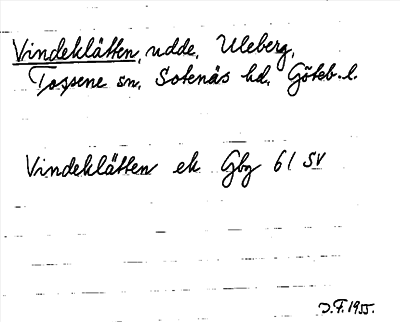 Vindeklätten, udde, Uleberg,
Tossene sn, Sotenäs hd, Göteb. l.
Vindeklätten ek Gbg 61 SV
J.F. 1955.